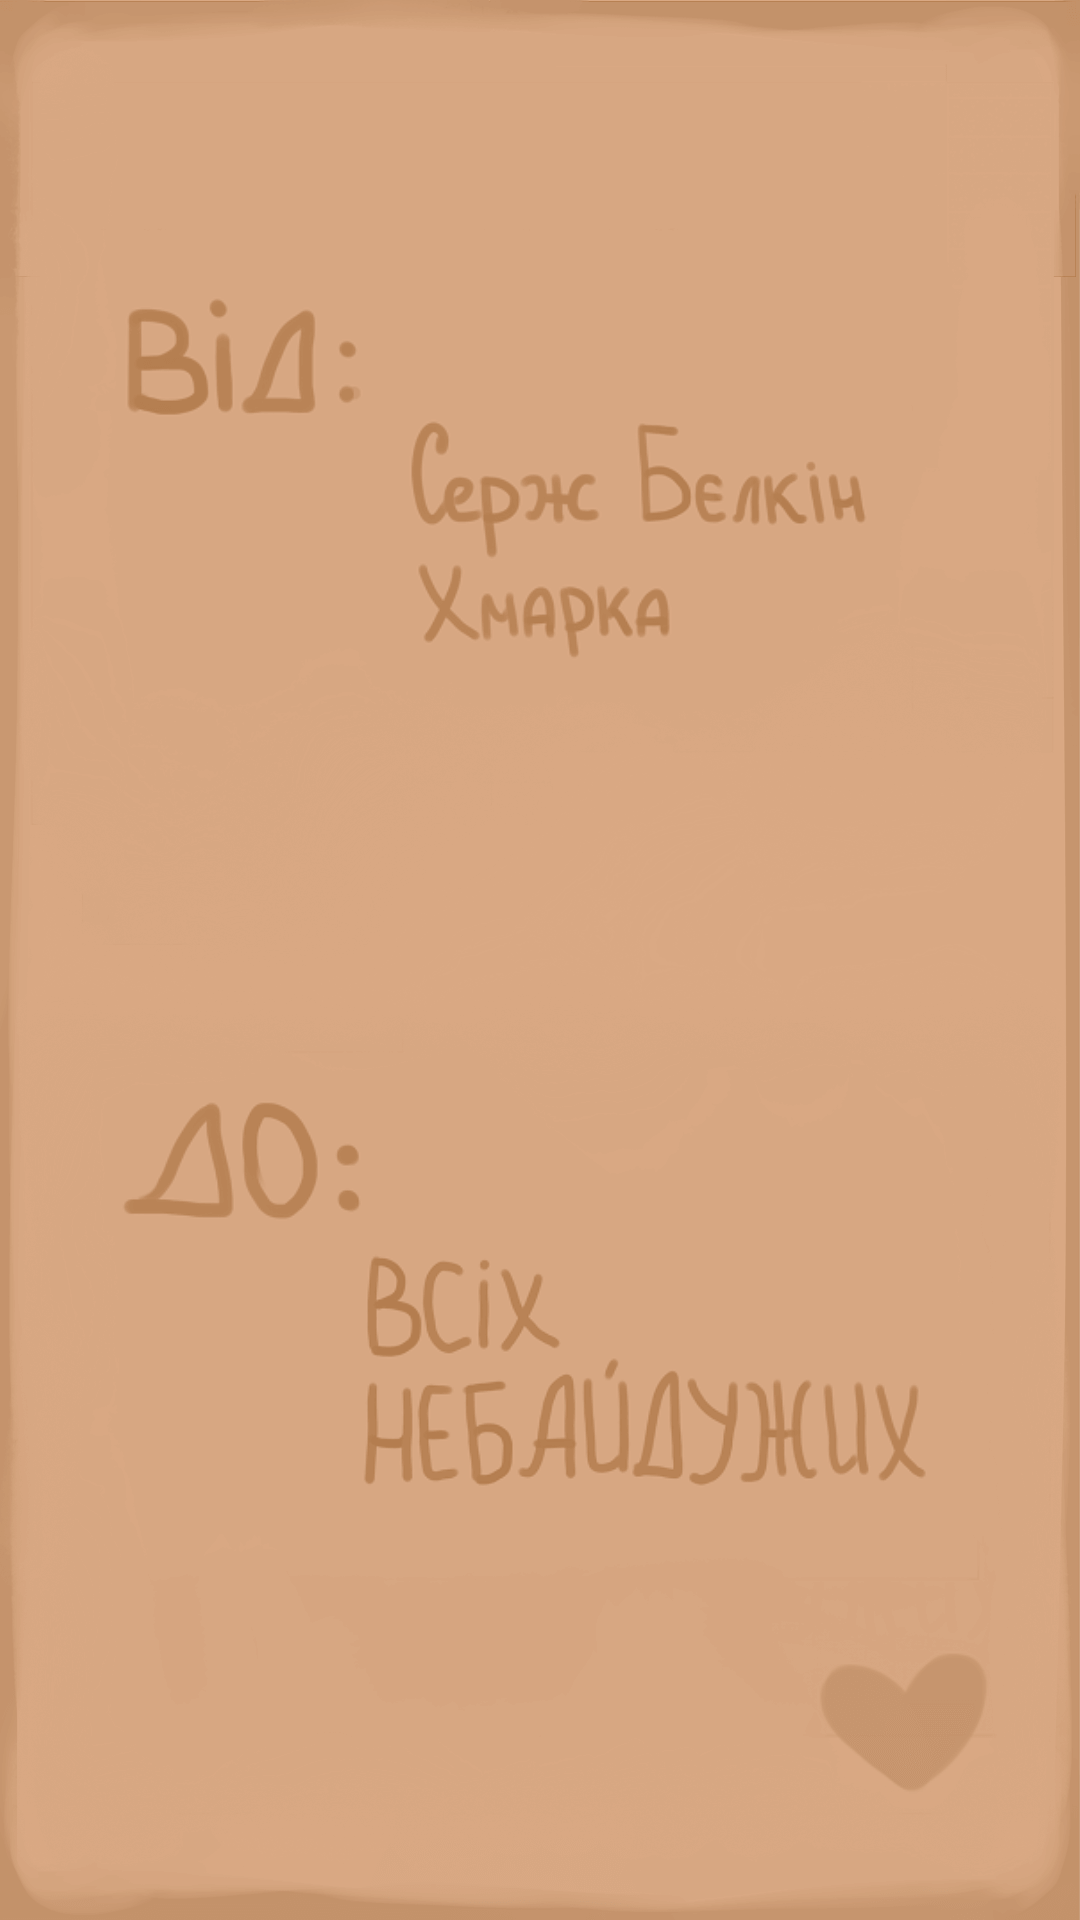 Від:
Серж Бєлкін
Хмарка
ДО:
ВСіХ
НЕБАЙДУЖИХ